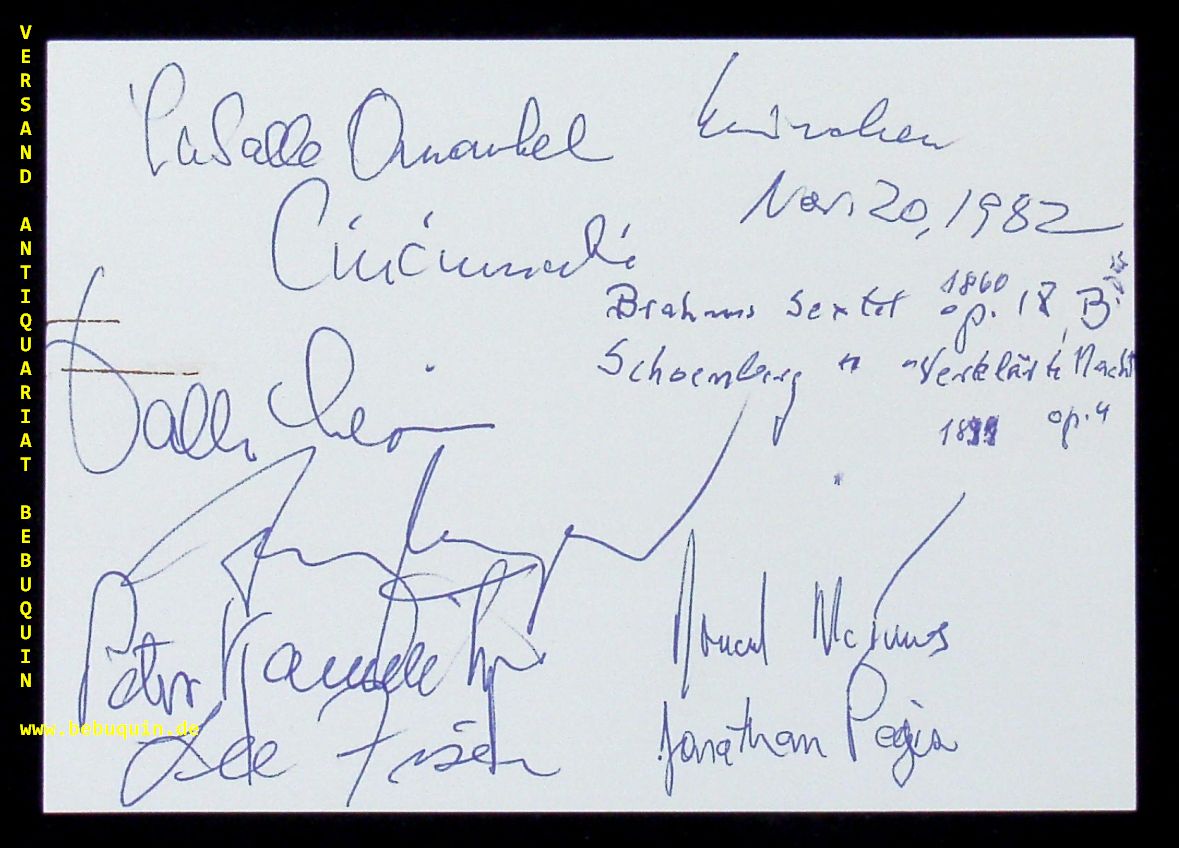 VERSAND ANTIQUARIAT BEBUQUIN
www.bebuquin.de
LaSalle Quartet
Cincinnati
München
Nov. 20, 1982
Brahms Sextet 1860 op. 18, B
Schoenberg " "Verklärte Nacht
18 op. 4
Walter Levin
Peter Kamnitzer
Lee Fiser
Donald McInnes
Jonathan Pegis